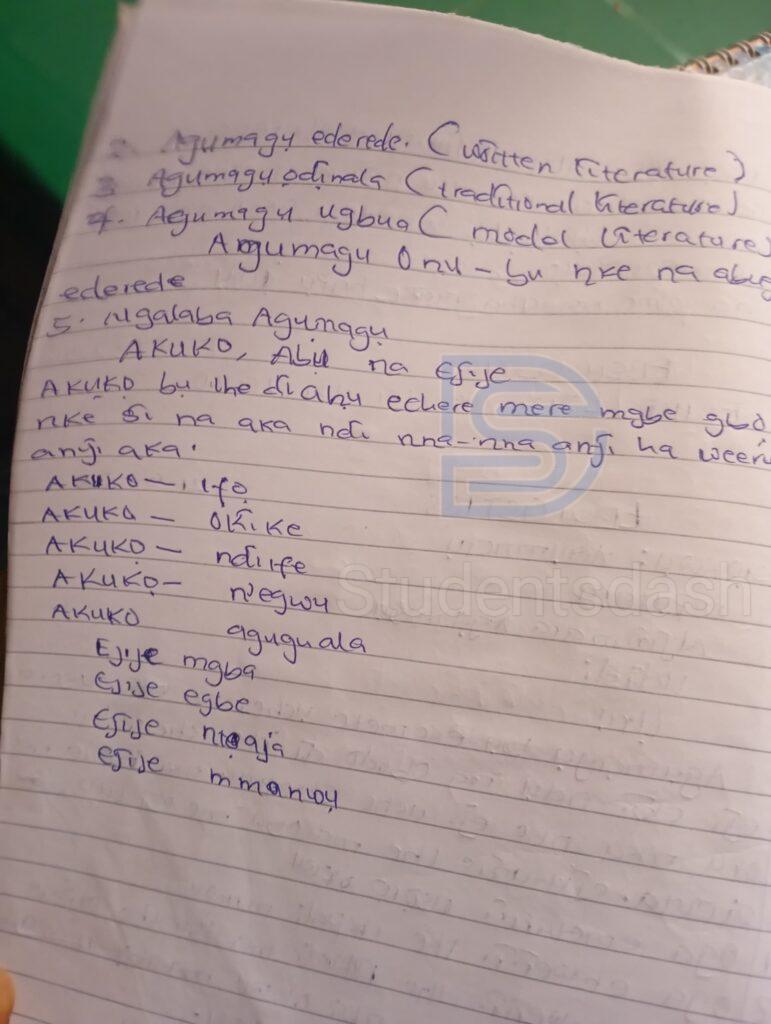 2. Agumagụ ederede. (written literature)
3 Agumagụ ọdịnala (traditional literature)
4. Agumagụ ugbua (modol literature)
Agumagụ Onu - bu nke na abụg
ederede
5. Ngalaba Agụmagụ
AKUKO, Abụ na Ejije
AKỤKỌ bụ ihe dị ahụ echere mere mgbe gbo
nke si na aka ndi nna-nna anyi ha weer
anyi aka.
AKUKO - ifọ
AKUKO - OKIKE
AKUKỌ - ndi ife
AKUKỌ - n'egwu
AKUKO agụgụala
Ejije mgba
Ejije egbe
Ejije
ejije mmanwụ
Studentsdash